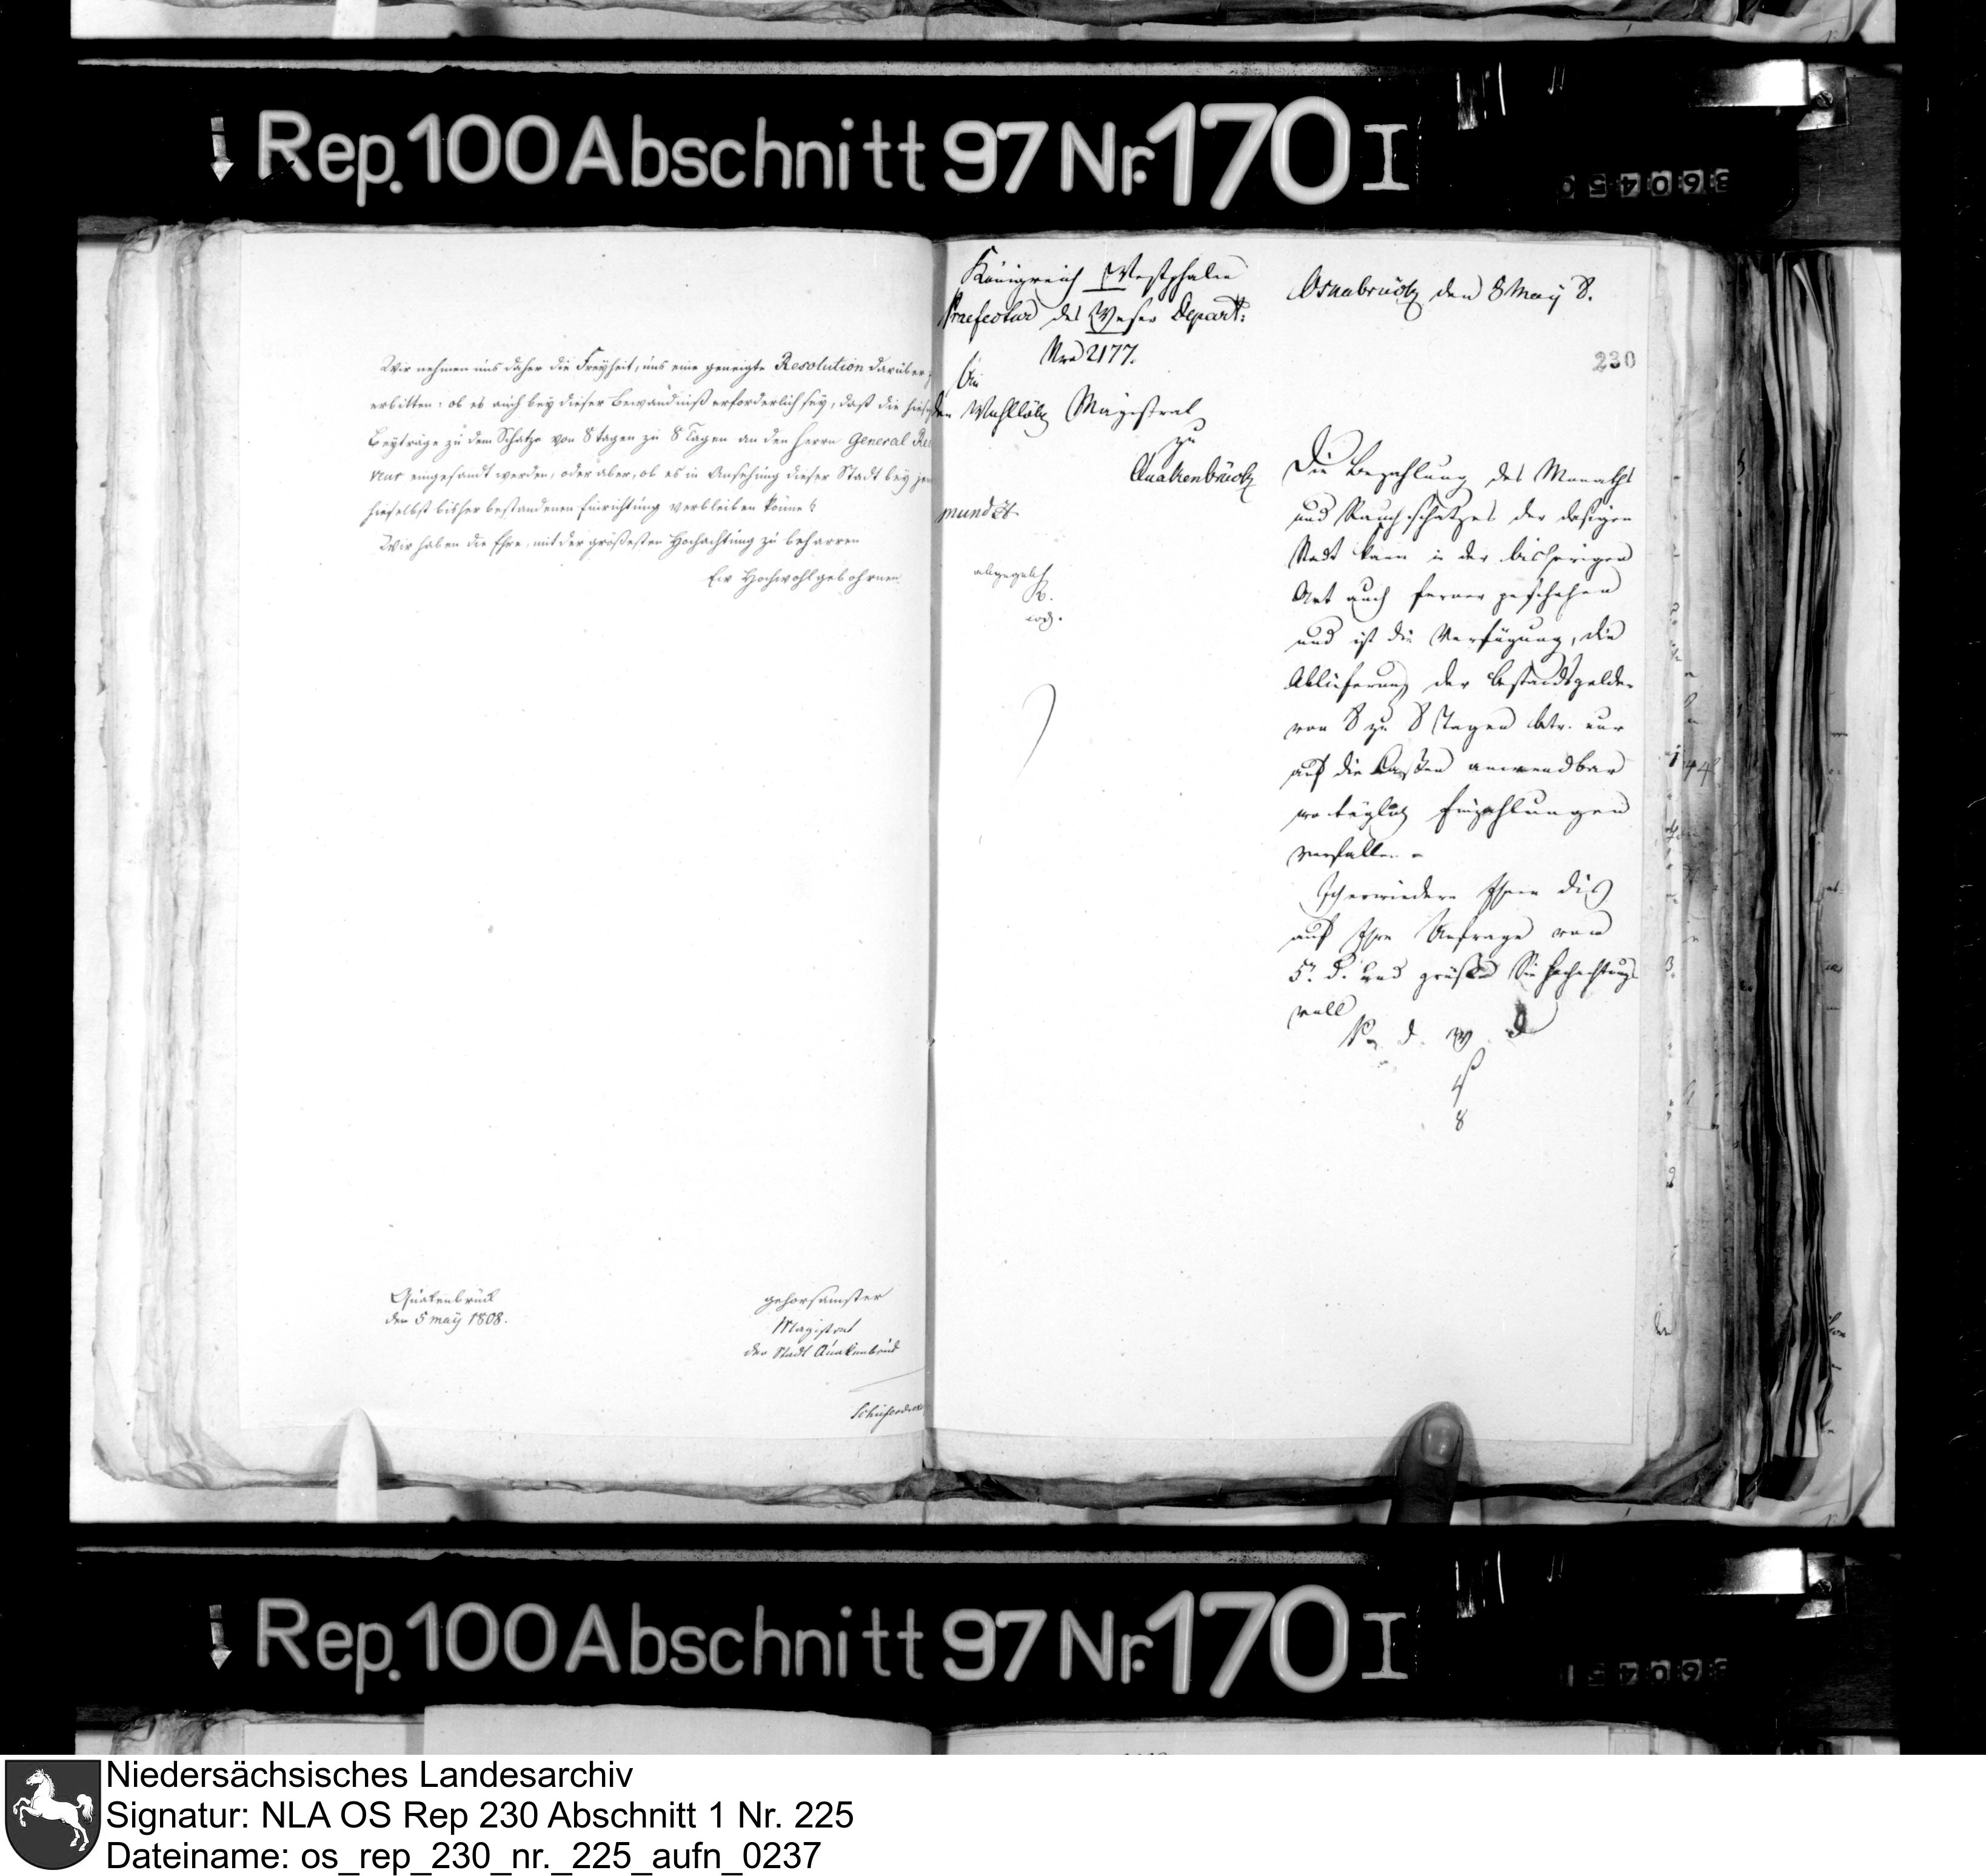 Rep. 100 Abschnitt 97 Nr. 170 I
360450
Wir nehmen uns daher die Freyheit, uns eine geneigte Resolution darüber zu
erbitten: ob es auch bey dieser Bewandniß erforderlich sey, daß die
Beyträge zu dem Schatze von 8 tagen zu 8 Tagen an den Herrn General
eingesandt werden, oder aber, ob es in Ansehung dieser Stadt bey
hieselbst bisher bestandenen Einrichtung verbleiben könne?
Wir haben die Ehre, mit der größesten Hochachtung zu beharren
Ew Hochwohlgebohrnen
Quakenbrück
den 5 may 1808.
gehorsamster
Magistrat
der Stadt Quakenbrück
Königreich Westphalen
Praefectur des Weser Depart:
Nro 2177.
Osnabrück den 8 May 8.
230
An
den Wohllöbl Magistrat
zu
Quakenbrück
mundt
abgegeb
Die Bezahlung des Monaths
und Rauchschatzes der dasigen
Stadt kann in der bisherigen
Art auch ferner geschehen
und ist die Verfügung, die
Ablieferung der Bestandsgelder
von 8 zu 8 Tagen betr. nur
auf die Cassen anwendbar
wo täglich Einzahlungen
vorfallen.
Ich erwiedere Ihnen dis
auf Ihre Anfrage vom
5. d. und grüße Sie hochachtungs
voll
P. d. W. D
8
Rep. 100 Abschnitt 97 Nr. 170 I
360451
Niedersächsisches Landesarchiv
Signatur: NLA OS Rep 230 Abschnitt 1 Nr. 225
Dateiname: os_rep_230_nr._225_aufn_0237